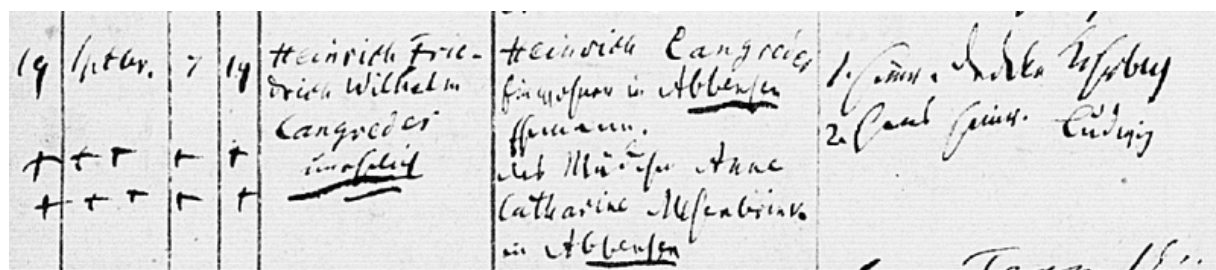 19 Septbr. 7 19
Heinrich Frie-
drich Wilhelm
Langreder
unehelich
Heinrich Langreder
Einwohner in Abbensen
Ehemann.
des Mädchen Anne
Catharine Mesenbrink
in Abbensen
1. Heinr.
2. Hans Heinr. Ludwig